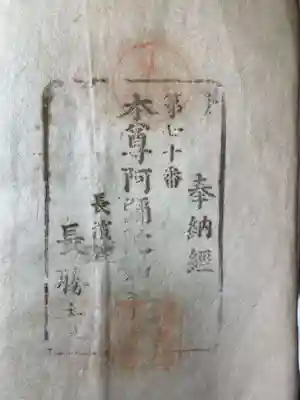 奉納經
第七十番
本尊阿彌陀如來
長濱
長勝寺